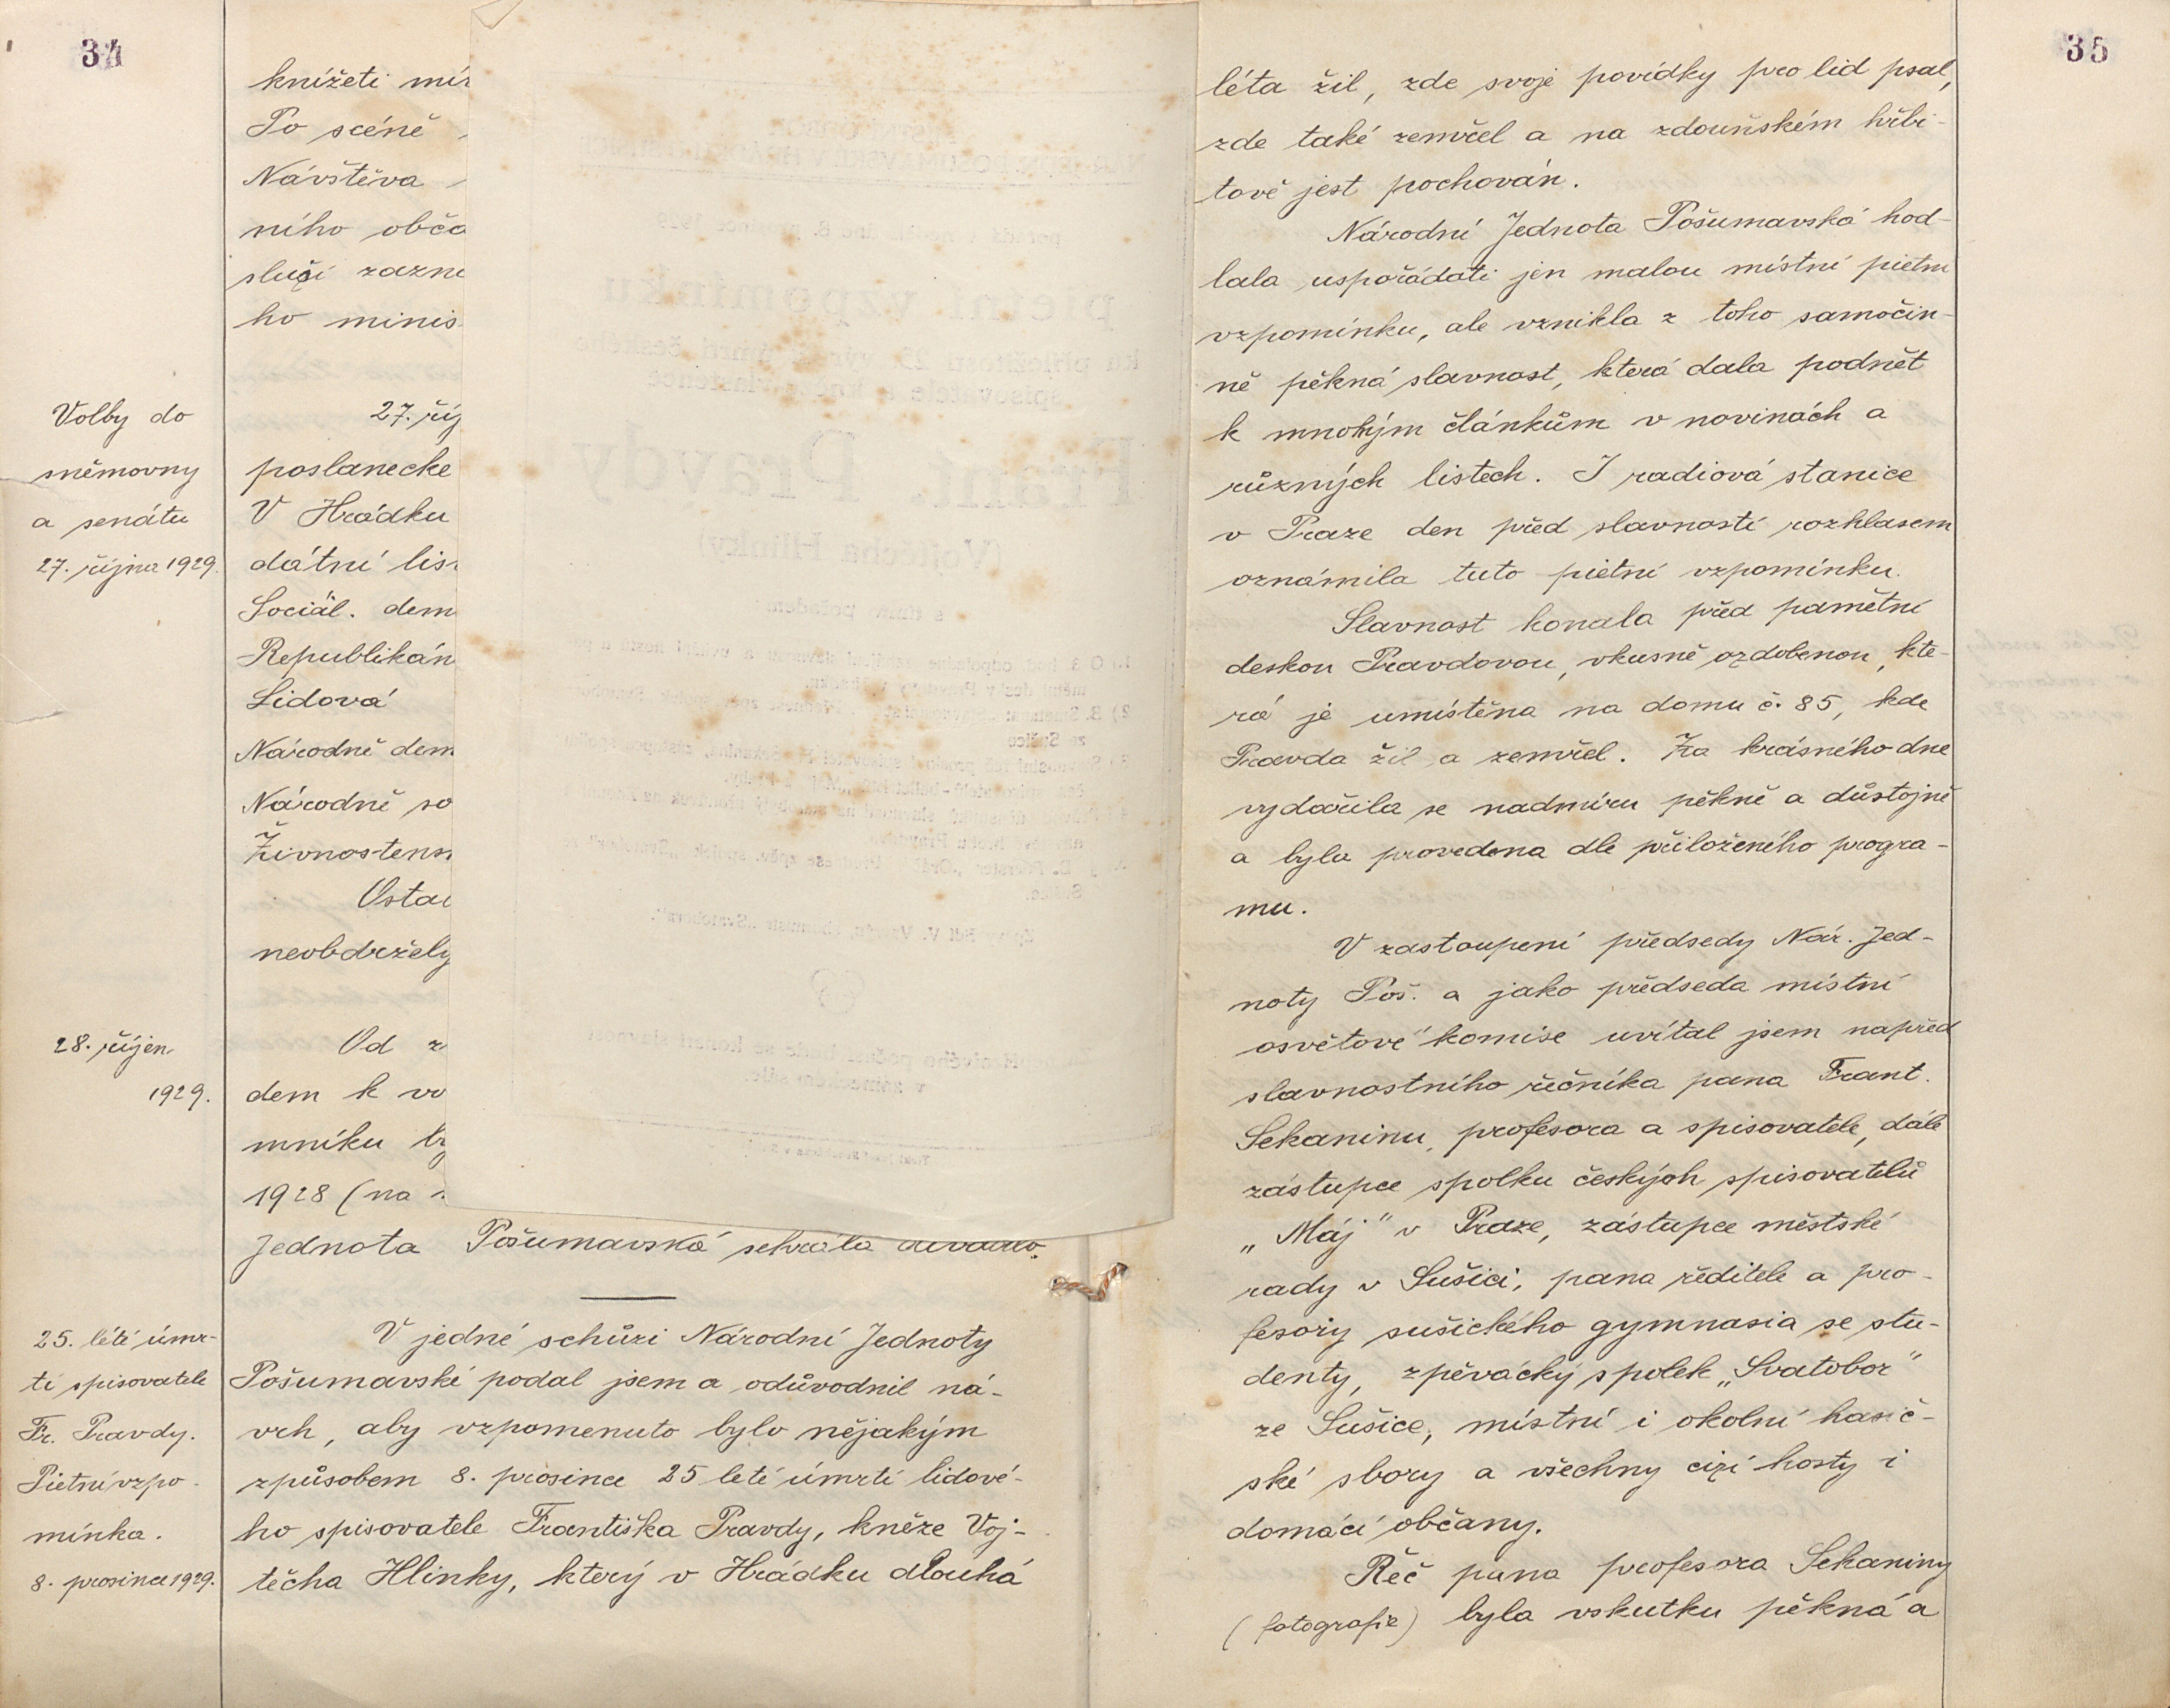 34
knížeti mír
Po scéně
Návštěva
ního obča
sluší zazna
ho minis
Volby do
sněmovny
a senátu
27. října 1929.
27. říj
poslanecké
V Hrádku
dátní lis
Sociál. dem
Republikán
Lidová
Národně dem
Národně so
Živnostens
Ostat
neobdržely
28. říjen
1929.
Od z
dem k vo
mníku
1928 (na
Jednota Pošumavská sehrála divadlo.
25. leté úmr-
tí spisovatele
Fr. Pravdy.
Pietní vzpo-
mínka.
8. prosince 1929.
V jedné schůzi Národní Jednoty
Pošumavské podal jsem a odůvodnil ná-
vrh, aby vzpomenuto bylo nějakým
způsobem 8. prosince 25 leté úmrtí lidové-
ho spisovatele Františka Pravdy, kněze Voj-
těcha Hlinky, který v Hrádku dlouhá
35
léta žil, zde svoje povídky pro lid psal,
zde také zemřel a na zdouňském hřbi-
tově jest pochován.
Národní Jednota Pošumavská hod-
lala uspořádati jen malou místní pietní
vzpomínku, ale vznikla z toho samočin-
ně pěkná slavnost, která dala podnět
k mnohým článkům v novinách a
různých listech. I radiová stanice
v Praze den před slavností rozhlasem
oznámila tuto pietní vzpomínku.
Slavnost konala před pamětní
deskou Pravdovou, vkusně ozdobenou, kte-
rá je umístěna na domu č. 85, kde
Pravda žil a zemřel. Za krásného dne
vydařila se nadmíru pěkně a důstojně
a byla provedena dle přiloženého progra-
mu.
V zastoupení předsedy Nár. Jed-
noty Poš. a jako předseda místní
osvětové komise uvítal jsem napřed
slavnostního řečníka pana Frant.
Sekaninu, profesora a spisovatele, dále
zástupce spolku českých spisovatelů
„Máj" v Praze, zástupce městské
rady v Sušici, pana ředitele a pro-
fesory sušického gymnasia se stu-
denty, zpěvácký spolek „Svatobor"
ze Sušice, místní i okolní hasič-
ské sbory a všechny cizí hosty i
domácí občany.
Řeč pana profesora Sekaniny
(fotografie) byla vskutku pěkná a